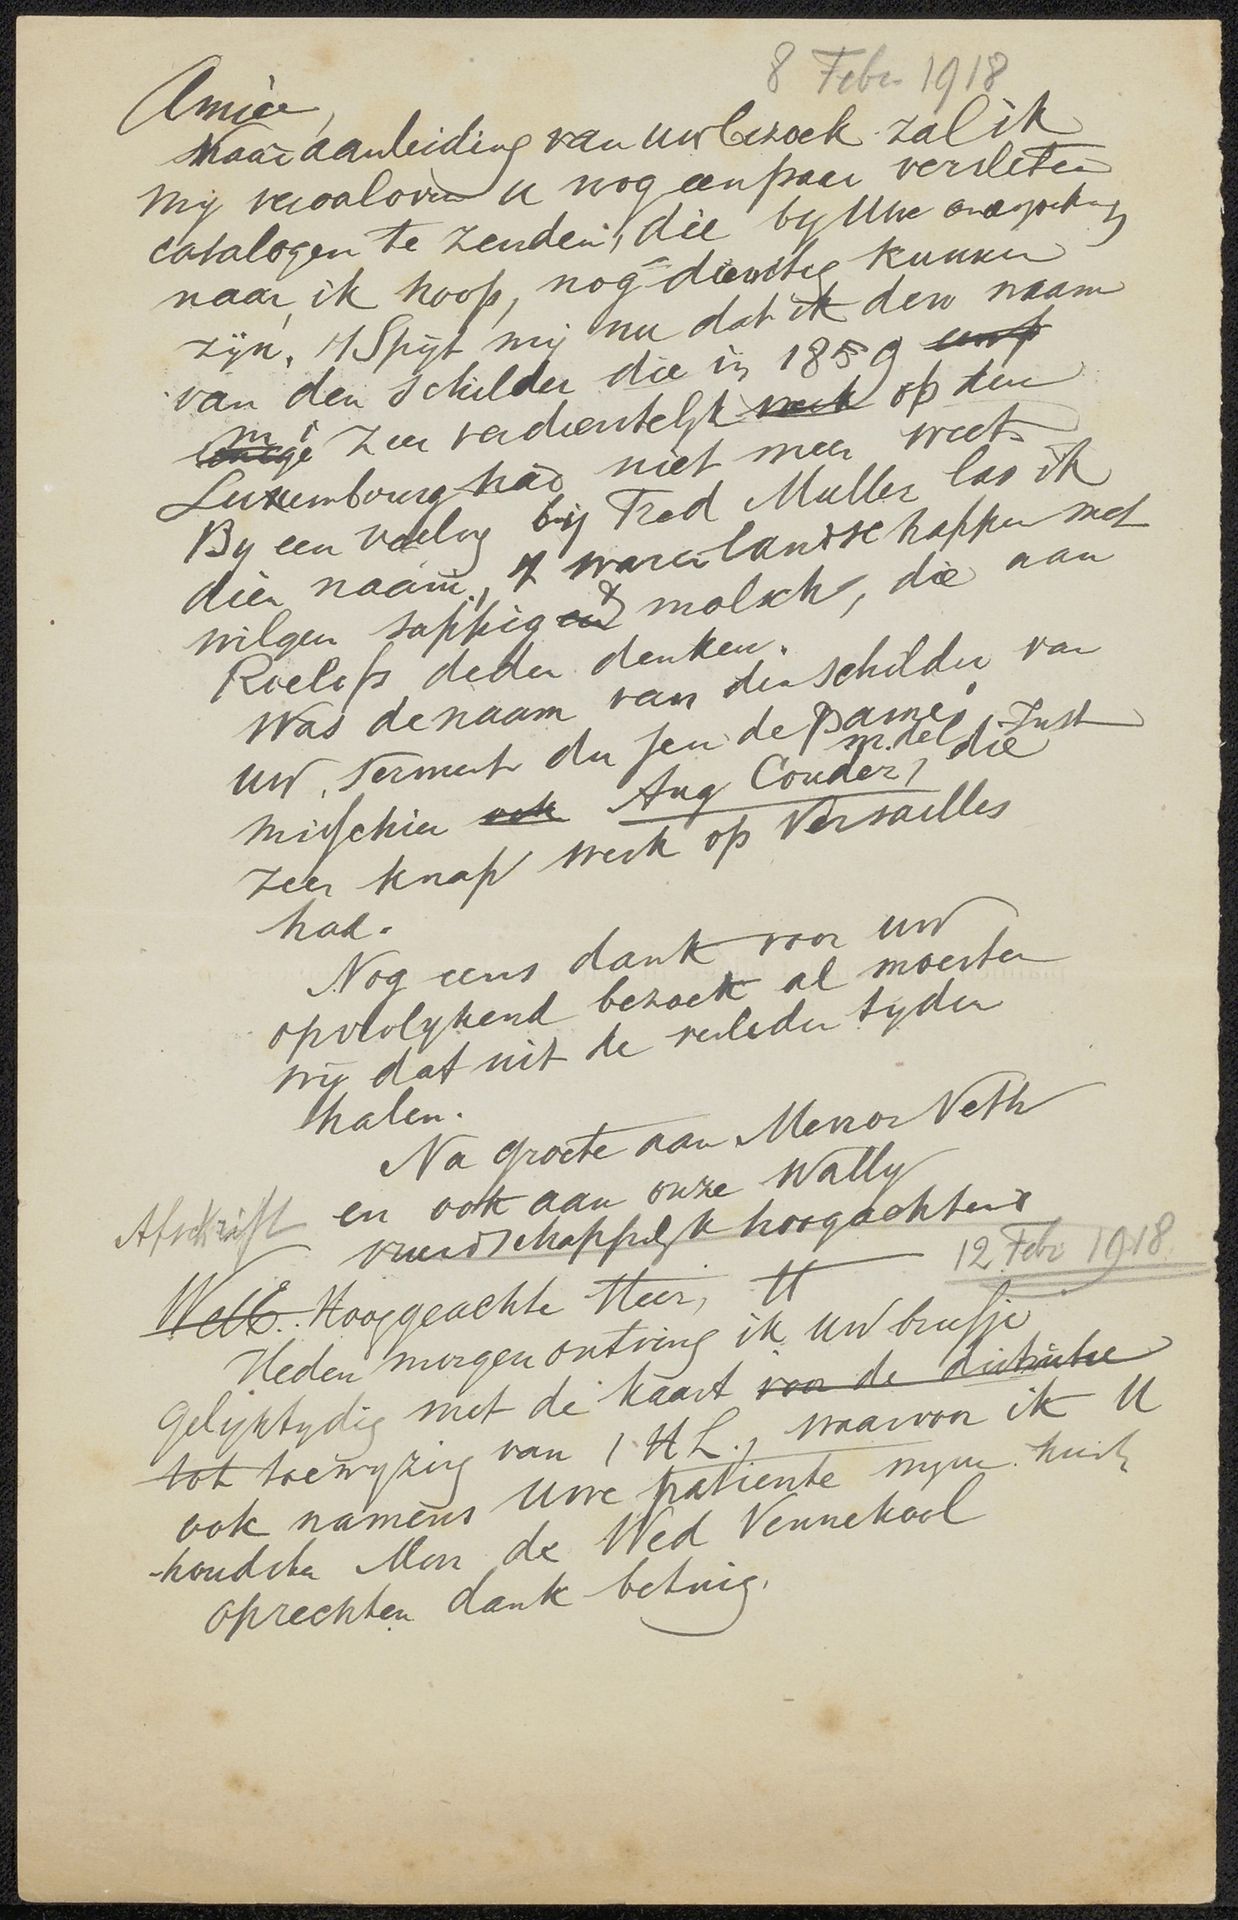 8 Febr 1918
Amice,
Naar aanleiding van uw bezoek zal ik
mij veroorloven u nog een paar versleten
catalogen te zenden, die by Uwe
naar, ik hoop, nog dienstig kunnen
zijn. 't Spijt mij nu dat ik den naam
van den schilder die in 1859
zeer verdienstelyk werk op den
Luxembourg had niet meer weet
By een veiling bij Fred Muller las ik
dien naam, 't waren landschappen met
wilgen sappig en malsch, die aan
Roelofs deden denken.
Was de naam van den schilder van
uw Serment du jeu de paume, Just
misschien ook Aug Couder, die
zeer knap werk op Versailles
had.
Nog eens dank voor uw
opvrolykend bezoek al moesten
wy dat uit de verleden tyden
halen.
Na groete aan Mevror Veth
en ook aan onze Wally
Afschrift vriendschappelyk hoogachtend
12 Febr 1918
WelE. Hooggeachte Heer, H
Heden morgen ontving ik uw briefje
gelyktydig met de kaart voor de distributie
tot toewyzing van 1 HL., waarvoor ik U
ook namens Uwe patiente myne huis-
-houdster Mevr de Wed Vennekool
oprechten dank betuig.